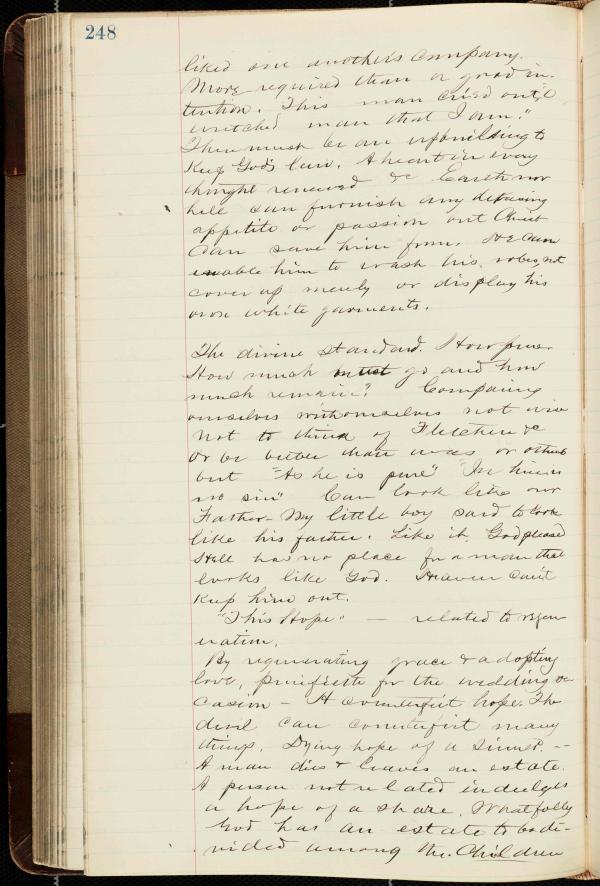 248
liked one another's company.
More required than a good in-
tention. This man cried out "O
wretched man that I am."
There must be an upbuilding to
keep God's law. A heart in every
thought renewed &c Earth nor
hell can furnish any debasing
appetite or passion but Christ
can save him from. He can
enable him to wash his robes, not
cover up merely or display his
own white garments.
The divine standard. How pure.
How much must go and how
much remain? Comparing
ourselves with ourselves not wise
Not to think of Fletcher &c
Or be better than was or others
but "As he is pure" "In him is
no sin" Can look like our
Father - My little boy said to look
like his father. Like it. God pleased
Hell has no place for a man that
looks like God. Heaven can't
keep him out.
"This Hope" — related to regen-
eration.
By regenerating grace & adopting
love, purifieth for the wedding oc-
casion - A counterfeit hope. The
devil can counterfeit many
things. Dying hope of a sinner. --
A man dies & leaves an estate.
A person not related indulges
a hope of a share. What folly
God has an estate to be di-
vided among the Children